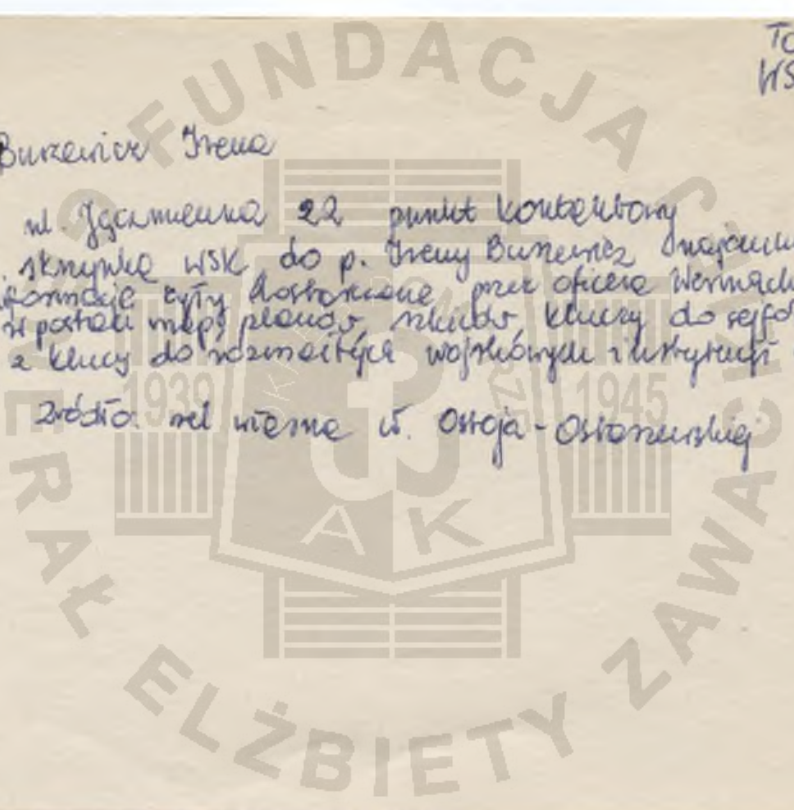 TO
WS
Burzewicz Irena
ul. Jęczmienna 22 punkt kontaktowy
skrzynka WSK do p. Ireny Burzewicz
były dostarczone przez oficera Wermach
w postaci map, planów, szkiców, kluczy do sejfó
a kluczy do rozmaitych wojskowych i instytucji
Źródło: rel własna W. Ostoja-Ostaszewskiej
FUNDACJA GENERAŁ ELŻBIETY ZAWACKIEJ
1939
1945
AK